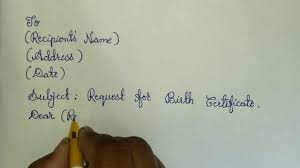 To
(Recipient's Name)
(Address)
(Date)
Subject: Request for Birth Certificate.
Dear (Re